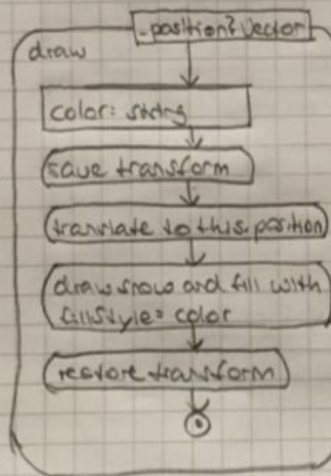 _position?: Vector
draw
color: string
save transform
translate to this.position
draw snow and fill with
fillStyle= color
restore transform